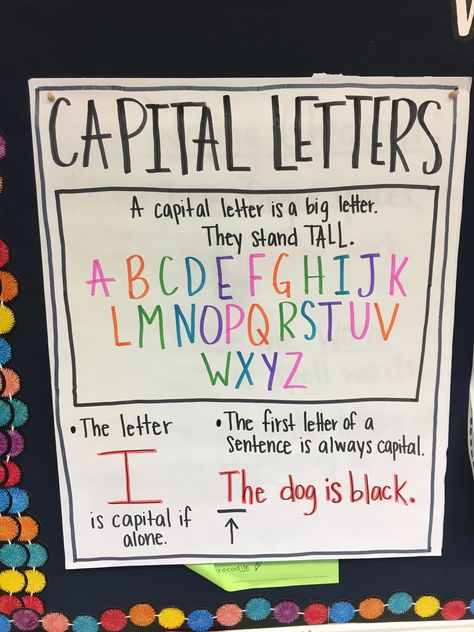 CAPITAL LETTERS
A capital letter is a big letter.
They stand TALL.
A B C D E F G H I J K
L M N O P Q R S T U V
W X Y Z
• The letter
I
is capital if
alone.
• The first letter of a
sentence is always capital.
The dog is black.